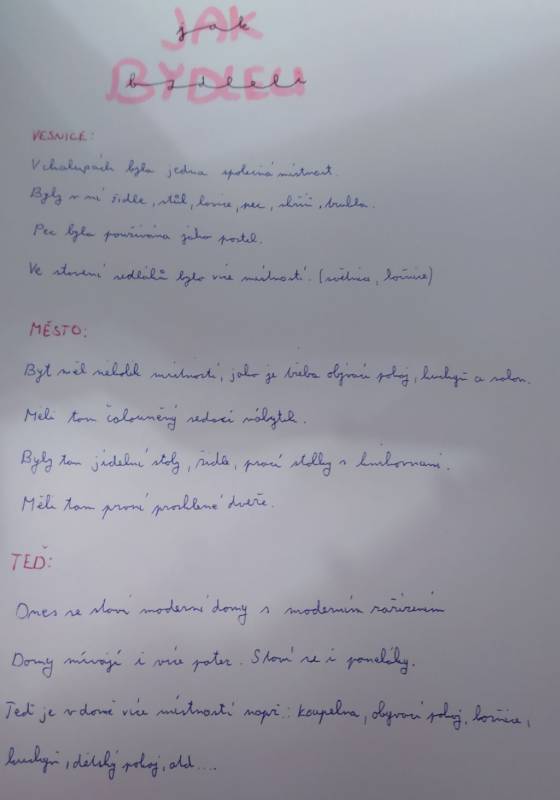 JAK
jak
BYDLELI
bydleli
VESNICE:
V chalupách byla jedna společná místnost.
Byly v ní židle, stůl, lavice, pec, skříň, truhla.
Pec byla používána jako postel.
Ve stavení sedláků bylo více místností. (světnice, ložnice)
MĚSTO:
Byt měl několik místností, jako je třeba obývací pokoj, kuchyň a salon.
Měli tam čalouněný sedací nábytek.
Byly tam jídelní stoly, židle, psací stolky s knihovnami.
Měli tam první prosklené dveře.
TEĎ:
Dnes se staví moderní domy s moderním zařízením
Domy mívají i více pater. Staví se i paneláky.
Teď je v domě více místností např.: koupelna, obyvací pokoj, ložnice,
kuchyň, dětský pokoj, atd....